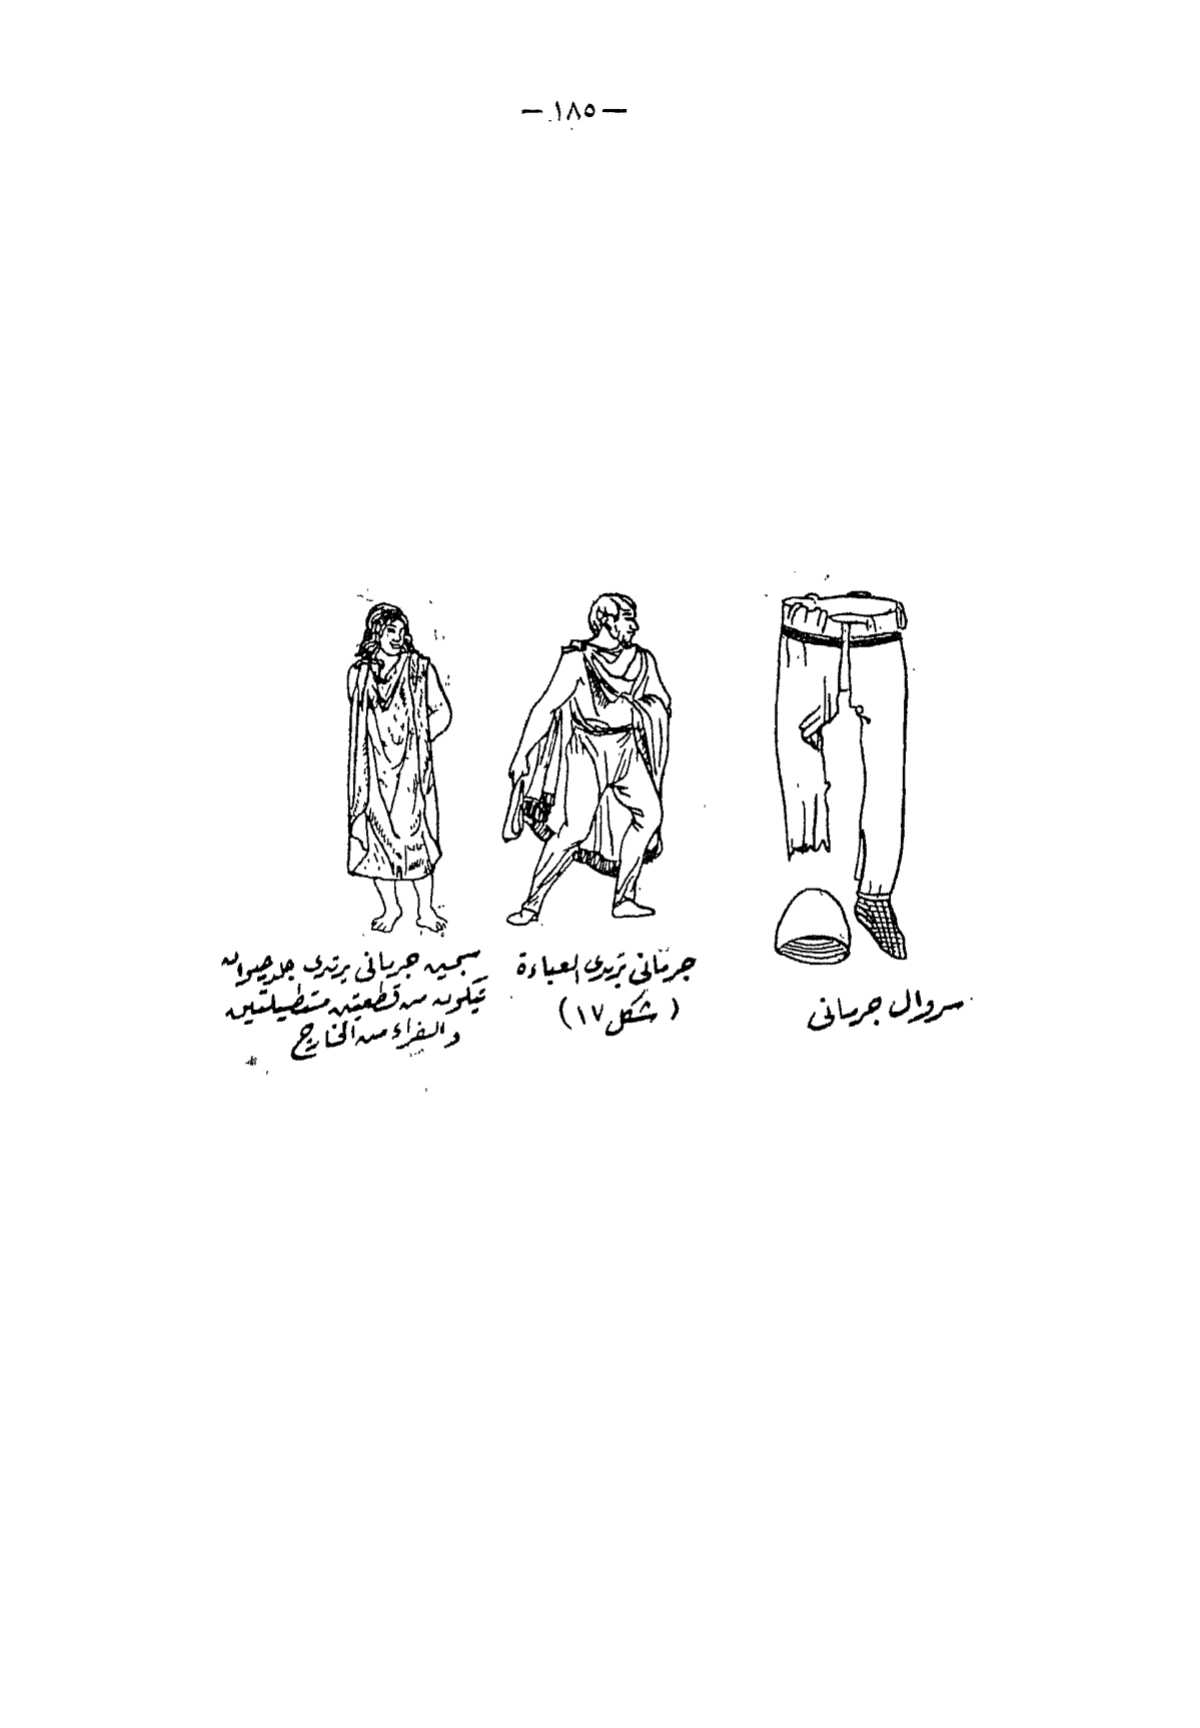 — ١٨٥ —
سروال جرمانى
جرمانى يرتدى العباءة
( شكل ١٧ )
سجين جرمانى يرتدى جلد حيوان
يتكون من قطعتين مستطيلتين
والفراء من الخارج